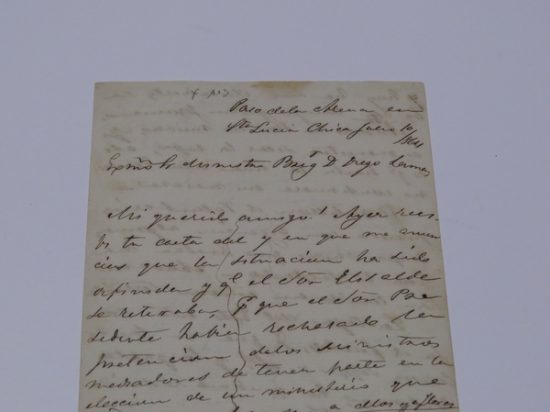 Nº 3
Paso de la Arena en
Sta Lucia Chica Julio 10
Exmo Sr Ministro Brigr D. Diego Lamas
Mi querido amigo! Ayer reci-
bi tu carta del 7 en que me anun-
cias que la situacion ha sido
definida y qe el Sor Elisalde
se retiraba, qe que el Sor Pre-
sidente habia rechasado la
pretencion de los Ministros
mediadores de tener parte en la
eleccion de un ministerio que
a Dlos